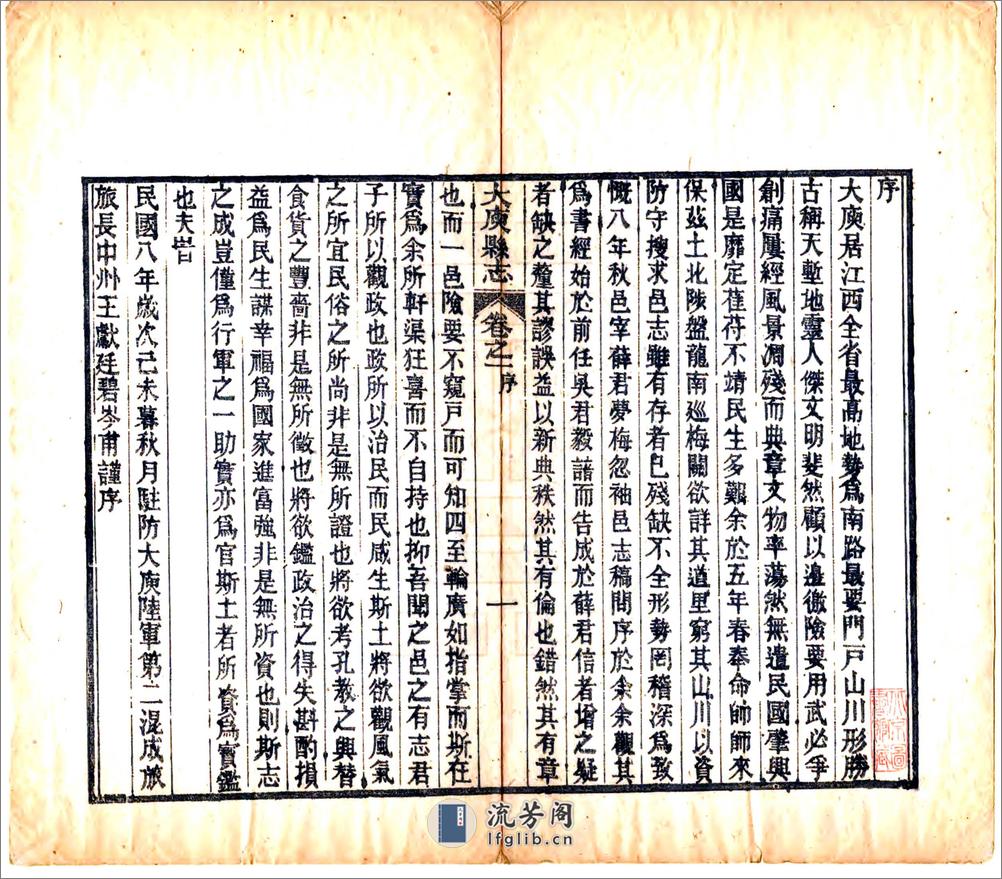 序
大庾居江西全省最高地勢爲南路最要門戸山川形勝
古稱天塹地靈人傑文明斐然顧以邊徼險要用武必爭
創痛屢經風景凋殘而典章文物率蕩然無遺民國肇興
國是靡定萑苻不靖民生多艱余於五年春奉命師師來
保茲土北陟盤龍南巡梅關欲詳其道里窮其山川以資
防守搜求邑志雖有存者已殘缺不全形勢罔稽深爲致
慨八年秋邑宰薛君夢梅忽袖邑志稿問序於余余觀其
爲書經始於前任吳君毅諳而告成於薛君信者增之疑
者缺之釐其謬誤益以新典秩然其有倫也錯然其有章
大庾縣志 卷之一 序 一
也而一邑險要不窺戸而可知四至輪廣如指掌而斯在
實爲余所軒渠狂喜而不自持也抑吾聞之邑之有志君
子所以觀政也政所以治民而民咸生斯土將欲觀風氣
之所宜民俗之所尚非是無所證也將欲考孔教之興替
食貨之豐嗇非是無所徵也將欲鑑政治之得失斟酌損
益爲民生謀幸福爲國家進富強非是無所資也則斯志
之成豈僅爲行軍之一助實亦爲官斯土者所資爲寶鑑
也夫旹
民國八年歲次己未暮秋月駐防大庾陸軍第二混成旅
旅長中州王獻廷碧岑甫謹序
流芳阁
lfglib.cn